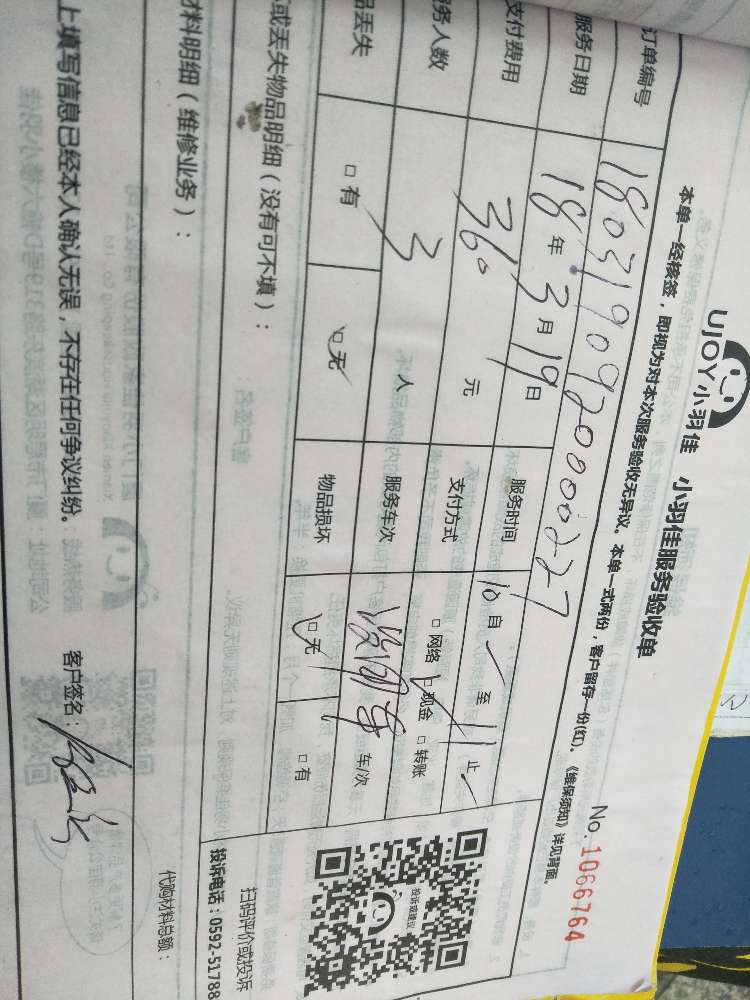 UJOY小羽佳 小羽佳服务验收单
No. 1066764
本单一经核签，即视为对本次服务验收无异议。本单一式两份，客户留存一份(红)。《维保须知》详见背面。
订单编号 18031909200000227
服务日期 18年3月19日 服务时间 10自 至 11止
支付费用 360元 支付方式 □网络 □现金 □转账
务人数 3人 服务车次 车/次
品丢失 □有 □无 物品损坏 □无 □有
或丢失物品明细（没有可不填）：
投诉或建议
扫码评价或投诉
投诉电话：0592-51788
材料明细（维修业务）：
代购材料总额：
上填写信息已经本人确认无误，不存在任何争议纠纷。 客户签名：